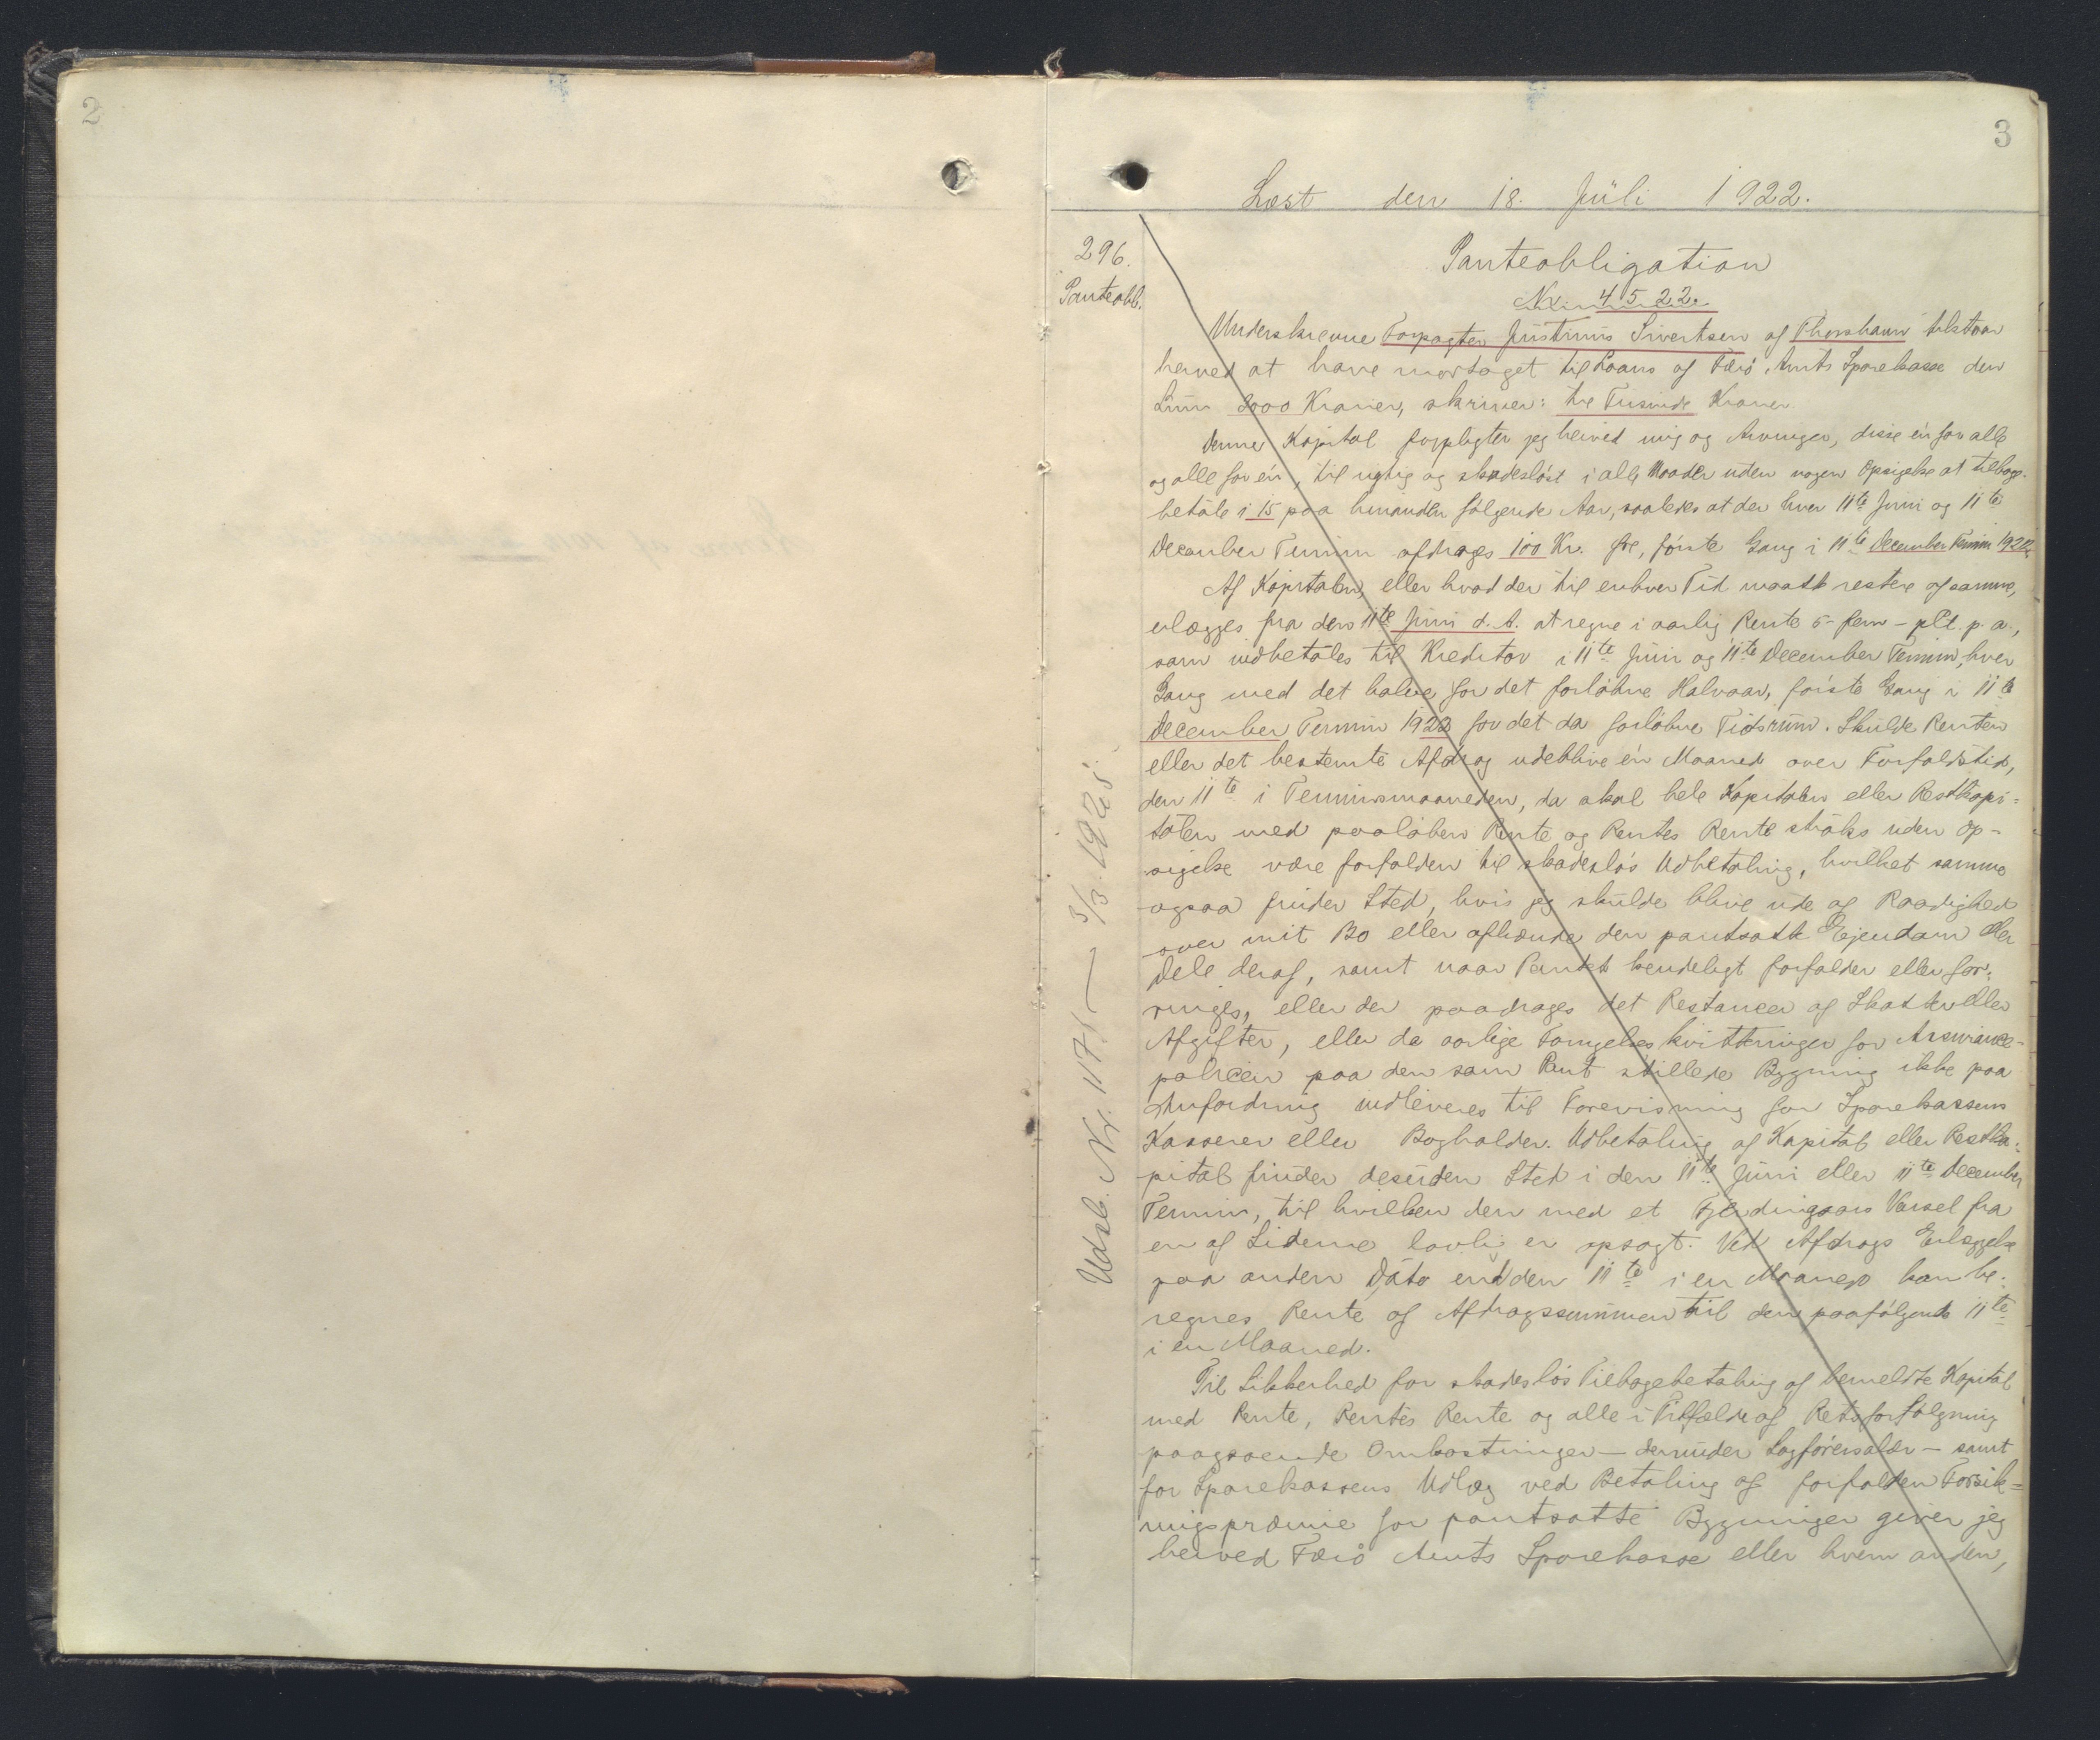 2
3
Læst den 18. Juli 1922.
296.
Panteobl.
Panteobligation
Nr. 4522.
Underskrevne Forpagter Justinus Sivertsen af Thorshavn tilstaar
herved at have modtaget til Laans af Færö Amts Sparekasse den
Sum 3000 Kroner, skriver: tre Tusinde Kroner.
Denne Kapital forpligter jeg herved mig og Arvinger, disse én for alle
og alle for én, til rigtig og skadesløst i alle Maader uden nogen Opsigelse at tilbage-
betale i 15 paa hinanden følgende Aar, saaledes at der hver 11te Juni og 11te
December Termin afdrages 100 Kr. første Gang i 11te December Termin 1922.
Af Kapitalen, eller hvad der til enhver Tid maatte restere af samme,
erlægges fra den 11te Juni d. A. at regne i aarlig Rente 5 - fem - pCt. p. a.,
som indbetales til Kreditor i 11te Juni og 11te December Termin, hver
Gang med det halve for det forløbne Halvaar, første Gang i 11te
December Termin 1922 for det da forløbne Tidsrum. Skulde Renten
eller det bestemte Afdrag udeblive én Maaned over Forfaldstid,
den 11te i Terminsmaaneden, da skal hele Kapitalen eller Restkapi-
talen med paaløben Rente og Rentes Rente straks uden Op-
sigelse være forfalden til skadesløs Udbetaling, hvilket samme
ogsaa finder Sted, hvis jeg skulde blive ude af Raadighed
over mit Bo eller afhænde den pantsatte Ejendom eller
Dele deraf, samt naar Pantet kendeligt forfalder eller for-
ringes, eller der paadrages det Restancer af Skatter eller
Afgifter, eller de aarlige Fornyelseskvitteringer for Assurance-
policen paa den som Pant stillede Bygning ikke paa
Anfordring indleveres til Forevisning for Sparekassens
Kasserer eller Bogholder. Udbetaling af Kapital eller Restka-
pital finder desuden Sted i den 11te Juni eller 11te December
Termin, til hvilken den med et Fjerdingaars Varsel fra
en af Siderne lovlig er opsagt. Ved Afdrags Erlæggelse
paa anden Dato end den 11te i en Maaned kan be-
regnes Rente af Afdragssummen til den paafølgende 11te
i en Maaned.
Til Sikkerhed for skadesløs Tilbagebetaling af bemeldte Kapital
med Rente, Rentes Rente og alle i Tilfælde af Retsforfølgning
paagaaende Omkostninger — derunder Sagførersalær — samt
for Sparekassens Udlæg ved Betaling af forfalden Forsik-
ringspræmie for pantsatte Bygninger giver jeg
herved Færö Amts Sparekasse eller hvem anden,
Udsl. Nr. 117. 3/3. 1925.